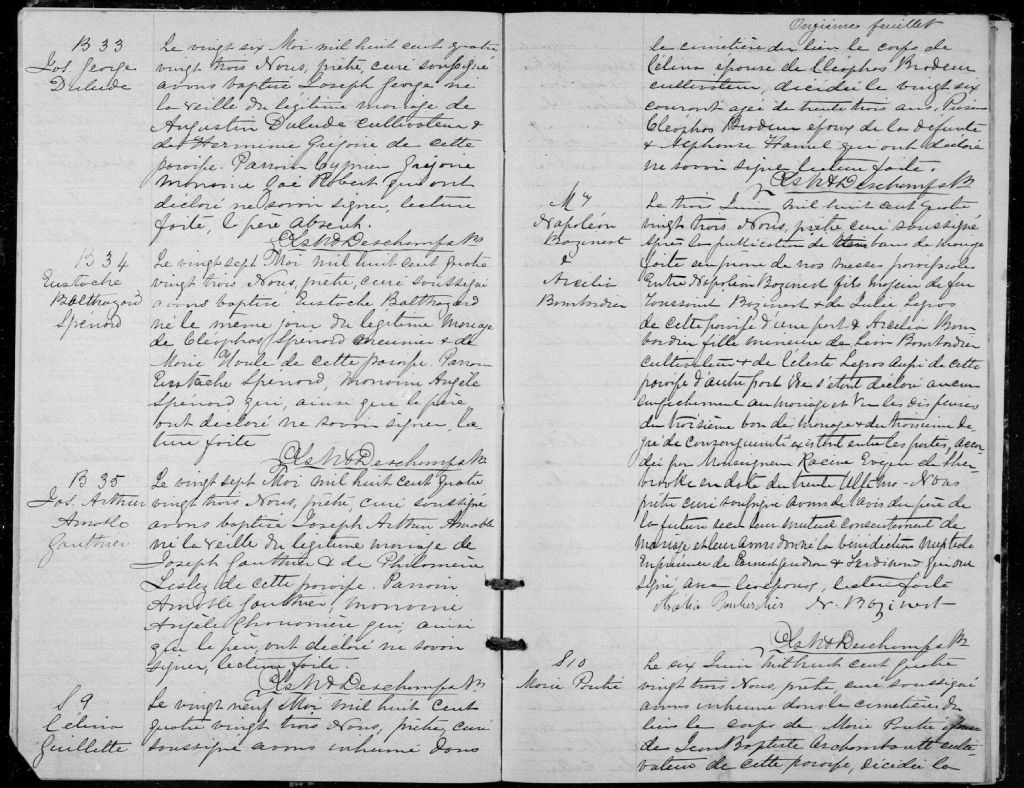 B 33
Jos. George
Dulude
Le vingt six Mai mil huit cent quatre
vingt trois Nous, prêtre, curé soussigné
avons baptisé Joseph George né
la veille du légitime mariage de
Augustin Dulude cultivateur &
de Hermine Grégoire de cette
paroisse. Parrain Cyprien Grégoire
Marraine Robert qui ont
déclaré ne savoir signer, lecture
faite, le père absent.
Deschamps Ptr
B 34
Eustache
Balthazard
Spénard
Le vingt sept Mai mil huit cent quatre
vingt trois Nous, prêtre, curé soussigné
avons baptisé Eustache Balthazard
né le même jour du légitime mariage
de Cléophas Spénard & de
Marie Houle de cette paroisse. Parrain
Eustache Spénard, Marraine Angèle
Spénard qui, ainsi que le père
ont déclaré ne savoir signer, lec
ture faite
Deschamps Ptr
B 35
Jos. Arthur
Amable
Gauthier
Le vingt sept Mai mil huit cent quatre
vingt trois Nous, prêtre, curé soussigné
avons baptisé Joseph Arthur Amable
né la veille du légitime mariage de
Joseph Gauthier & de Philomène
de cette paroisse. Parrain
Amable Gauthier, marraine
Angèle qui, ainsi
que le père, ont déclaré ne savoir
signer, lecture faite.
Deschamps Ptr
S 9
Célina
Guillette
Le vingt neuf Mai mil huit cent
quatre vingt trois Nous, prêtre, curé
soussigné avons inhumé dans
Onzième feuillet
le cimetière du lieu le corps de
Célina épouse de Cléophas Brodeur
cultivateur, décédée le vingt six
courant agée de trente trois ans. Présens
Cléophas Brodeur époux de la défunte
& Alphonse Hamel qui ont déclaré
ne savoir signer lecture faite.
Deschamps Ptr
M 7
Napoléon
Bazinet
&
Arzélia
Bombardier
Le trois Juin mil huit cent quatre
vingt trois Nous, prêtre curé soussigné
Après la publication de bans de mariage
faite au prone de nos messes paroissiales
Entre Napoléon Bazinet fils majeur de feu
Toussaint Bazinet & de Julie Legros
de cette paroisse d'une part & Arzélia Bom
bardier fille mineure de Léon Bombardier
cultivateur & de Céleste Legros aussi de cette
paroisse d'autre part Ne s'étant déclaré aucun
empêchement au mariage et Vu les dispenses
du troisième ban de mariage & du troisième de
gré de consanguinité existant entre les parties, accor
dée par Monseigneur Racine Evêque de Sher
brooke en date du trente Ultimo - Nous
prêtre curé soussigné avons de l'avis du père de
la future reçu leur mutuel consentement de
mariage et leur avons donné la bénédiction nuptiale
En présence de & qui ont
signé avec les époux, lecture faite
Arzélia Bombardier N. Bazinet
Deschamps Ptr
S 10
Marie Poutré
Le six Juin mil huit cent quatre
vingt trois Nous, prêtre, curé soussigné
avons inhumé dans le cimetière du
lieu le corps de Marie Poutré épouse
de Jean Baptiste Archambault culti
vateur de cette paroisse, décédée la